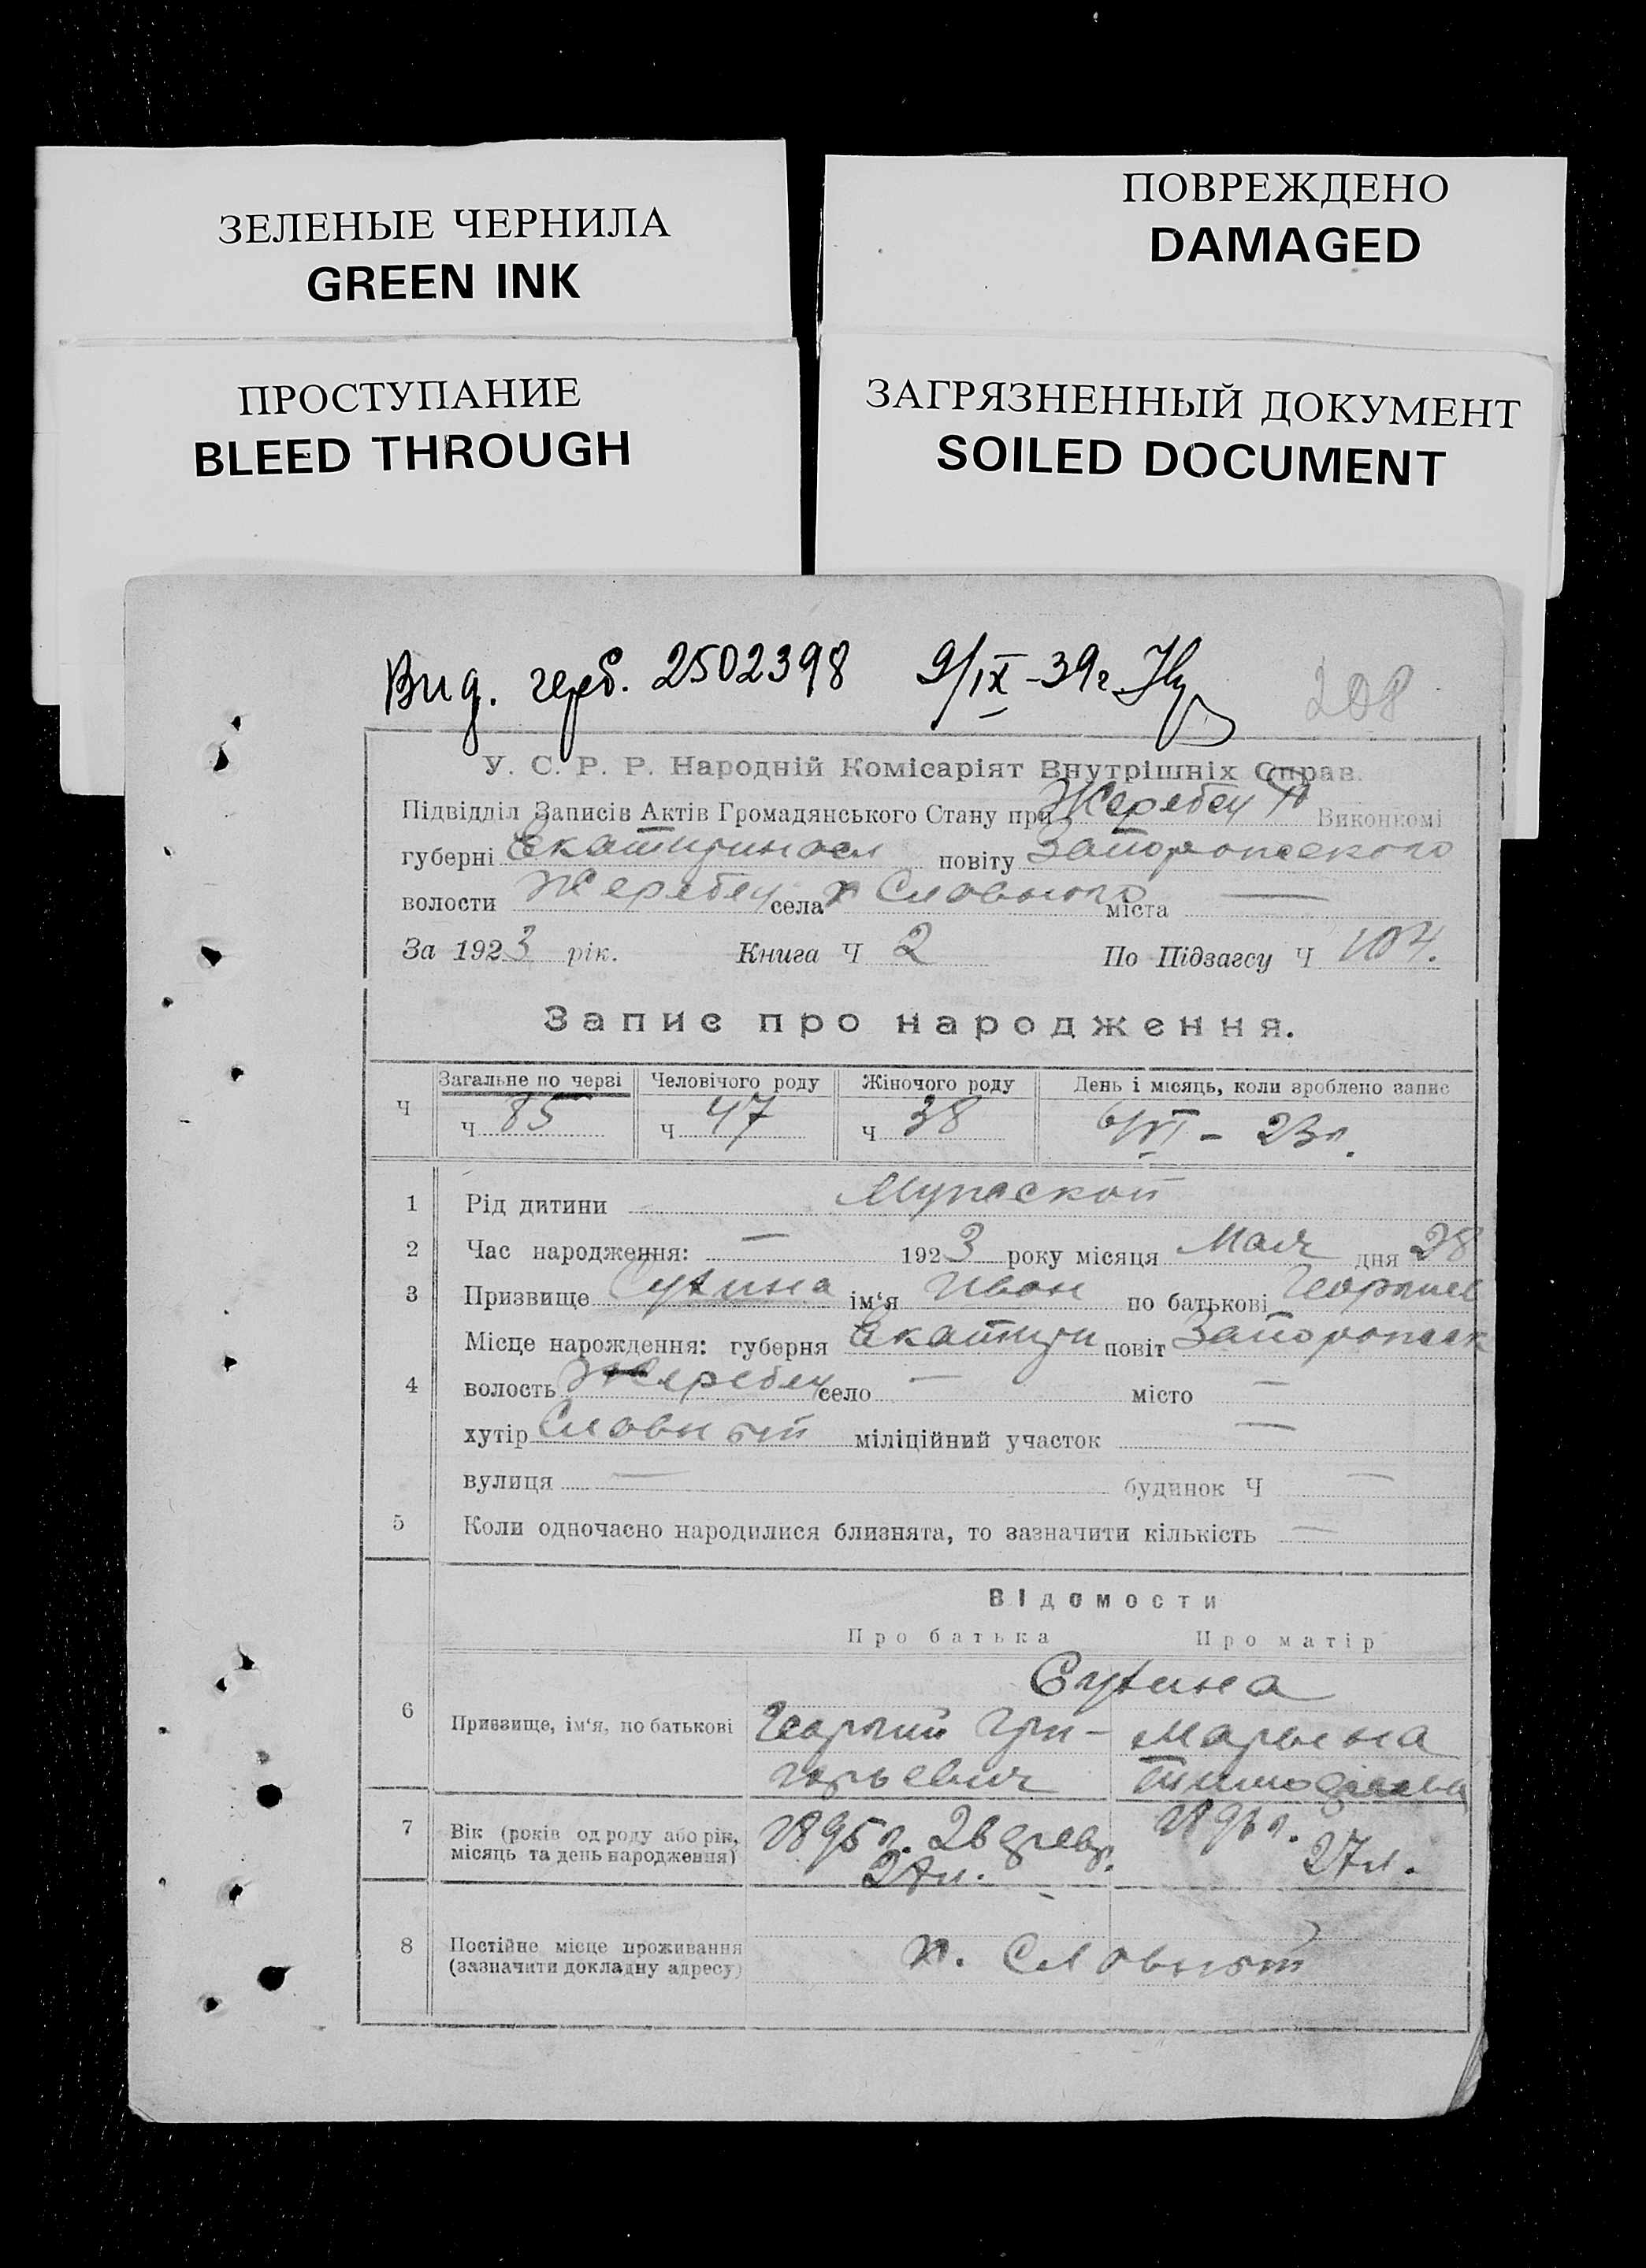 ЗЕЛЕНЫЕ ЧЕРНИЛА
GREEN INK
ПОВРЕЖДЕНО
DAMAGED
ПРОСТУПАНИЕ
BLEED THROUGH
ЗАГРЯЗНЕННЫЙ ДОКУМЕНТ
SOILED DOCUMENT
Вид. герб. 2502398 9/IX-39г
208
У. С. Р. Р. Народній Комісаріят Внутрішніх Справ.
Підвідділ Записів Актів Громадянського Стану при Жеребец Виконкомі
губерні Екатириносл повіту Запорожского
волости Жеребец села х Словного міста —
За 1923 рік. Книга Ч 2 По Підзагсу Ч 104.
Запис про народження.
Ч Загальне по черзі Человічого роду Жіночого роду День і місяць, коли зроблено запис
Ч 85 Ч 47 Ч 38 6/VI – 23г.
1 Рід дитини Мужской
2 Час народження: — 1923 року місяця Мая дня 28
3 Призвище Сухина ім‘я Иван по батькові Георгиев
Місце нарождення: губерня Екатири повіт Запорожск
4 волость Жеребец село — місто —
хутір Словный міліційний участок —
вулиця — будинок Ч —
5 Коли одночасно народилися близнята, то зазначити кількість —
Відомости
Про батька Про матір
Сухина
6 Призвище, ім‘я, по батькові Георгий Гри- Марьяна
горьевич
7 Вік (років од роду або рік, місяць та день народження) 1895г. 26 февр. 1896г.
27л. 27л.
8 Постійне місце проживання (зазначити докладну адресу) х. Словный